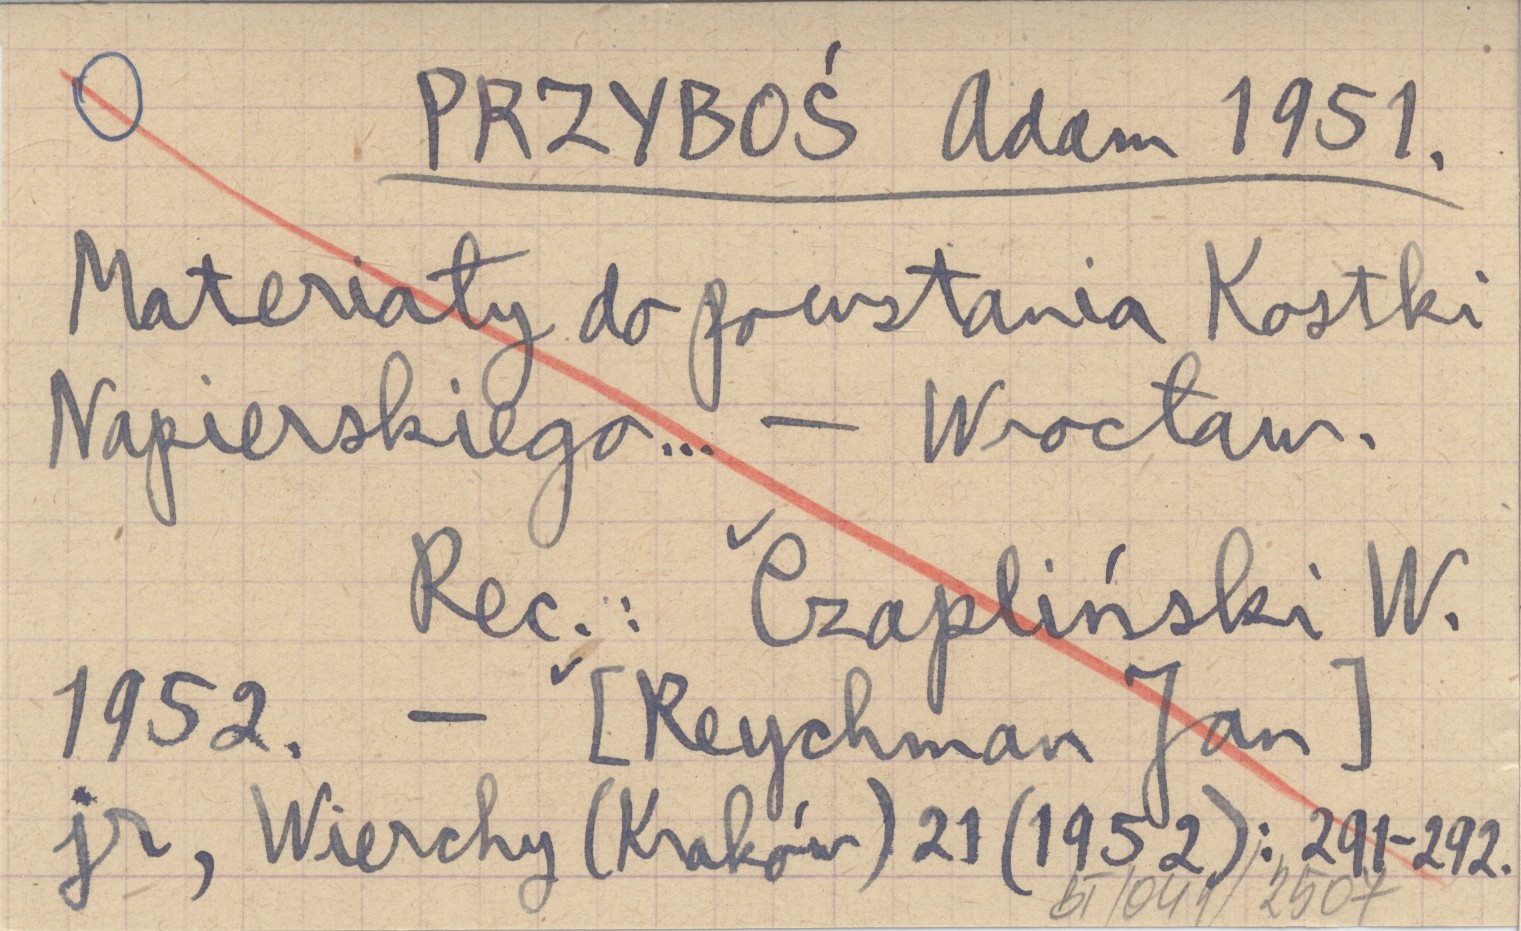 PRZYBOŚ Adam 1951.
Materiały do powstania Kostki
Napierskiego... — Wrocław.
Rec.: Czapliński W.
1952. — [Reychman Jan]
jr, Wierchy (Kraków) 21 (1952): 291-292.
BT/041/2507